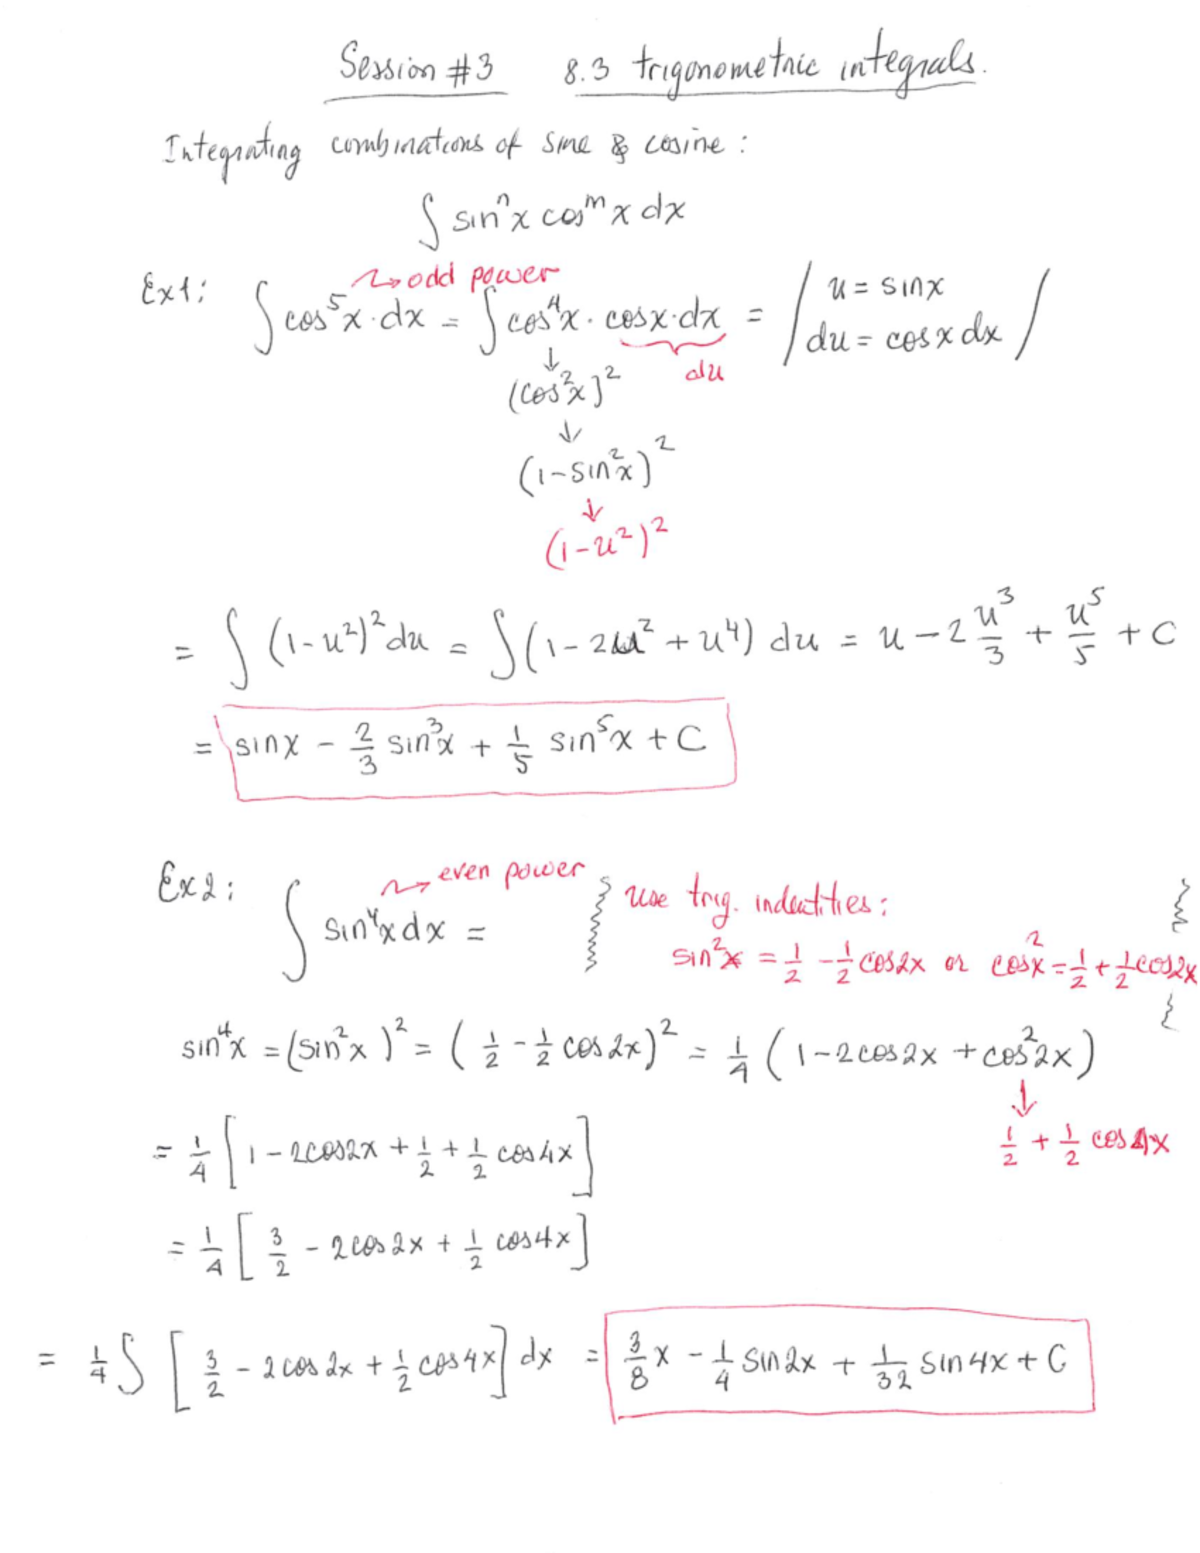 Session #3 8.3 trigonometric integrals.
Integrating combinations of sine & cosine:
∫ sinⁿx cosᵐx dx
Ex1: ∫ cos⁵x·dx = ∫ cos⁴x · cosx·dx = / u = sinx /
→ odd power
du = cosx dx
↓ du
(cos²x)²
↓
(1-sin²x)²
↓
(1-u²)²
= ∫ (1-u²)² du = ∫ (1-2u²+u⁴) du = u - 2 u³/3 + u⁵/5 + C
= sinx - 2/3 sin³x + 1/5 sin⁵x + C
Ex2: ∫ sin⁴x dx =
→ even power
Use trig. indentities:
sin²x = 1/2 - 1/2 cos2x or cos²x = 1/2 + 1/2 cos2x
sin⁴x = (sin²x)² = (1/2 - 1/2 cos2x)² = 1/4 (1-2cos2x + cos²2x)
↓
1/2 + 1/2 cos4x
= 1/4 [1 - 2cos2x + 1/2 + 1/2 cos4x]
= 1/4 [3/2 - 2cos2x + 1/2 cos4x]
= 1/4 ∫ [3/2 - 2cos2x + 1/2 cos4x] dx = 3/8 x - 1/4 sin2x + 1/32 sin4x + C